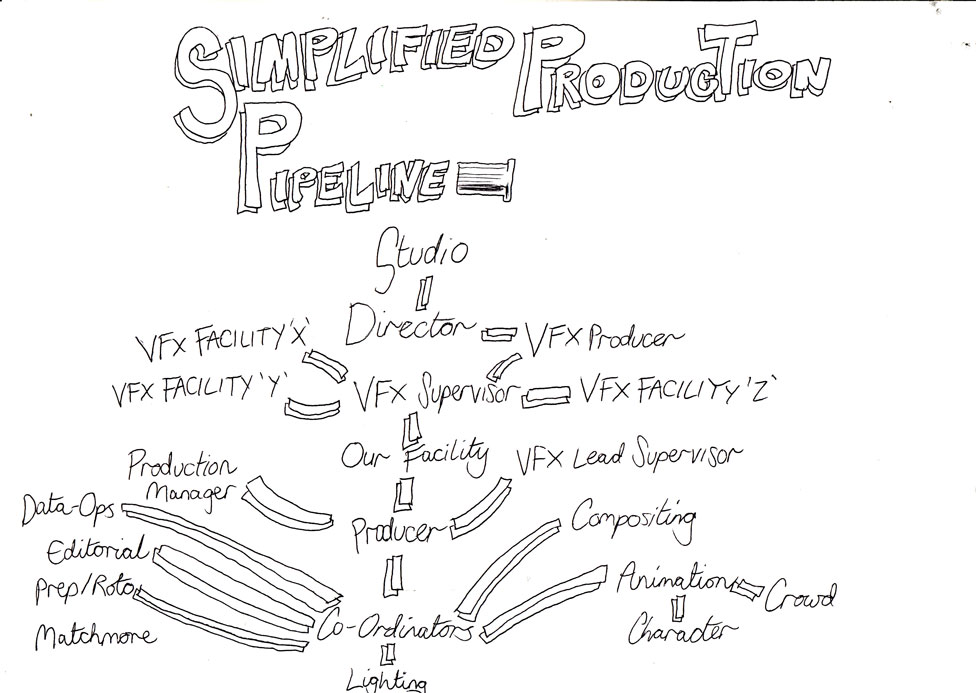 SIMPLIFIED PRODUCTION
PIPELINE
Studio
Director
VFX FACILITY 'X'
VFX Producer
VFX FACILITY 'Y'
VFX Supervisor
VFX FACILITY 'Z'
Our Facility
VFX Lead Supervisor
Production
Manager
Data-Ops
Producer
Compositing
Editorial
Prep/Roto
Animation
Crowd
Matchmore
Co-Ordinators
Character
Lighting